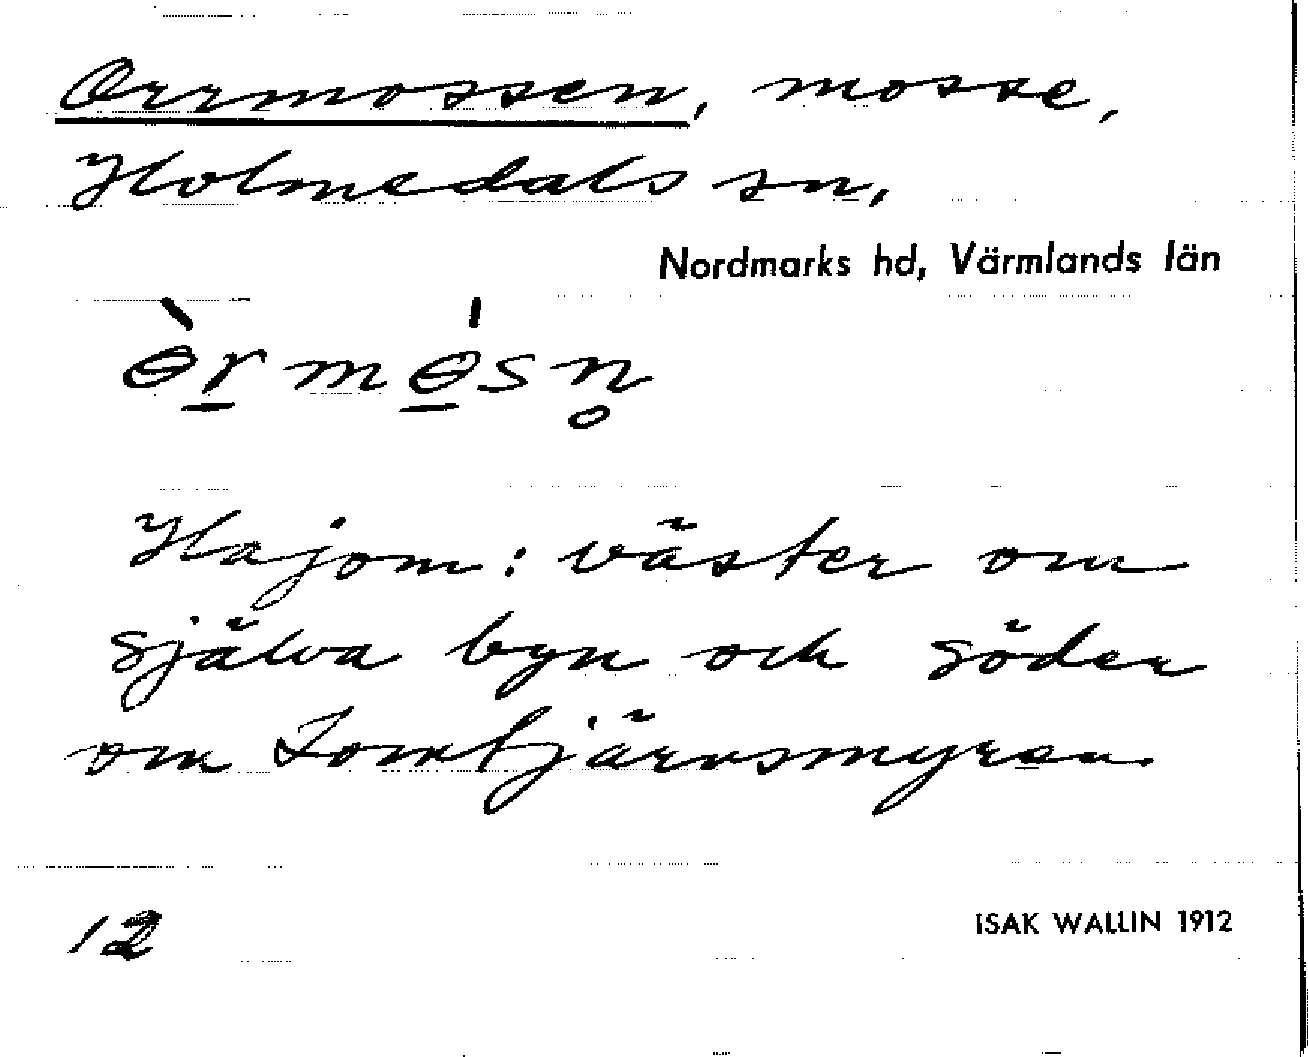 Orrmossen, mosse,
Holmedals sn,
Nordmarks hd, Värmlands län
ɵ̀r̲mɵ̲́sn̥
Hajom: väster om
själva byn och söder
om Lomtjärnsmyren.
12
ISAK WALLIN 1912